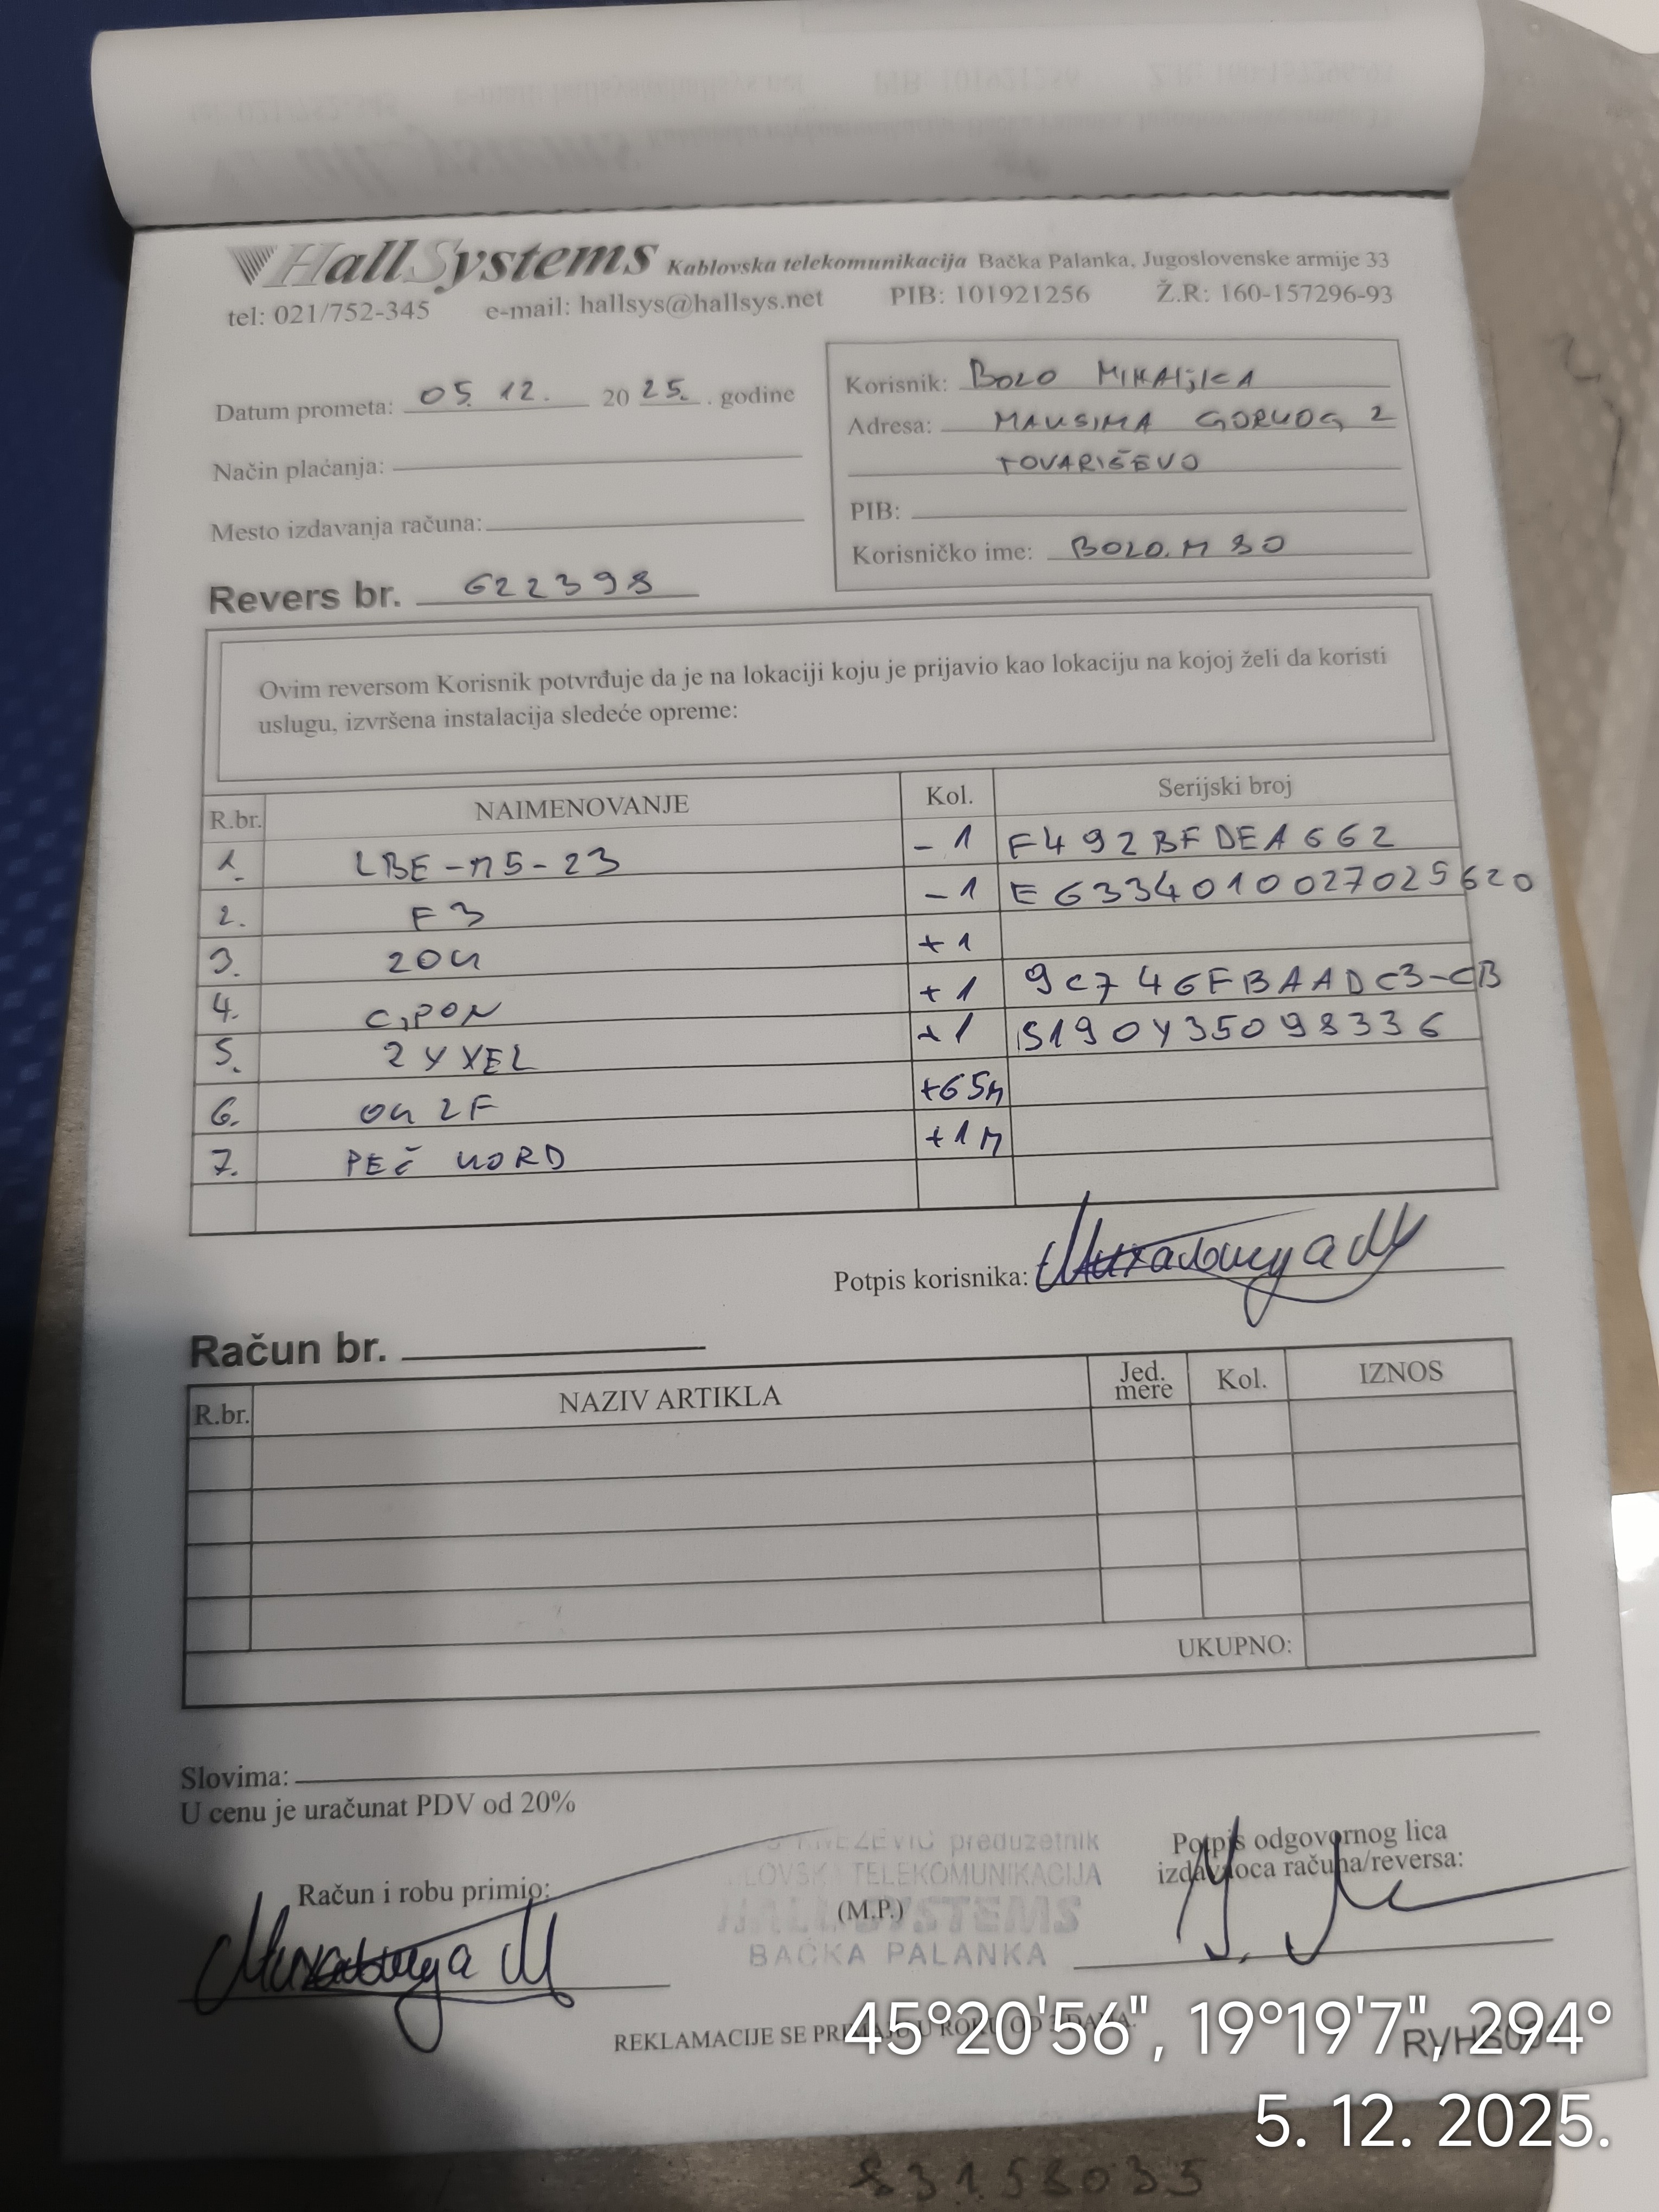 HallSystems Kablovska telekomunikacija Bačka Palanka, Jugoslovenske armije 33
tel: 021/752-345 e-mail: hallsys@hallsys.net PIB: 101921256 Ž.R: 160-157296-93
Datum prometa: 05. 12. 20 25. . godine
Način plaćanja:
Mesto izdavanja računa:
Revers br. 622398
Korisnik: BOLO MIHAJLCA
Adresa: MAKSIMA GORKOG 2
TOVARIŠEVO
PIB:
Korisničko ime: BOLO.M 80
Ovim reversom Korisnik potvrđuje da je na lokaciji koju je prijavio kao lokaciju na kojoj želi da koristi
uslugu, izvršena instalacija sledeće opreme:
R.br. NAIMENOVANJE Kol. Serijski broj
1. LBE-M5-23 -1 F492BFDEA662
2. F3 -1 E6334010027025620
3. ZOK +1
4. GPON +1 9C746FBAADC3-CB
5. ZYXEL +1 S190Y35098336
6. OK 2F +65M
7. PEČ KORD +1M
Potpis korisnika:
Račun br.
R.br. NAZIV ARTIKLA Jed. mere Kol. IZNOS
UKUPNO:
Slovima:
U cenu je uračunat PDV od 20%
KNEZEVIC preduzetnik
TELEKOMUNIKACIJA
HALLSYSTEMS
BAČKA PALANKA
Račun i robu primio:
(M.P.)
Potpis odgovornog lica
izdavaoca računa/reversa:
REKLAMACIJE SE PRIMAJU U ROKU OD DANA.
45°20'56", 19°19'7", 294°
5. 12. 2025.
83158035